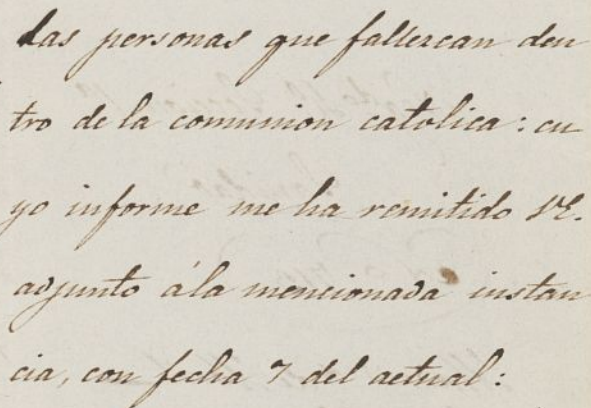 las personas que fallezcan den
tro de la comunion catolica: cu
yo informe me ha remitido VE.
adjunto á la mencionada instan
cia, con fecha 7 del actual: